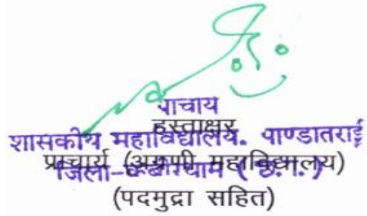 प्राचार्य
हस्ताक्षर
शासकीय महाविद्यालय. पाण्डातराई
प्राचार्य (अग्रणी महाविद्यालय)
जिला-कबीरधाम (छ.ग.)
(पदमुद्रा सहित)